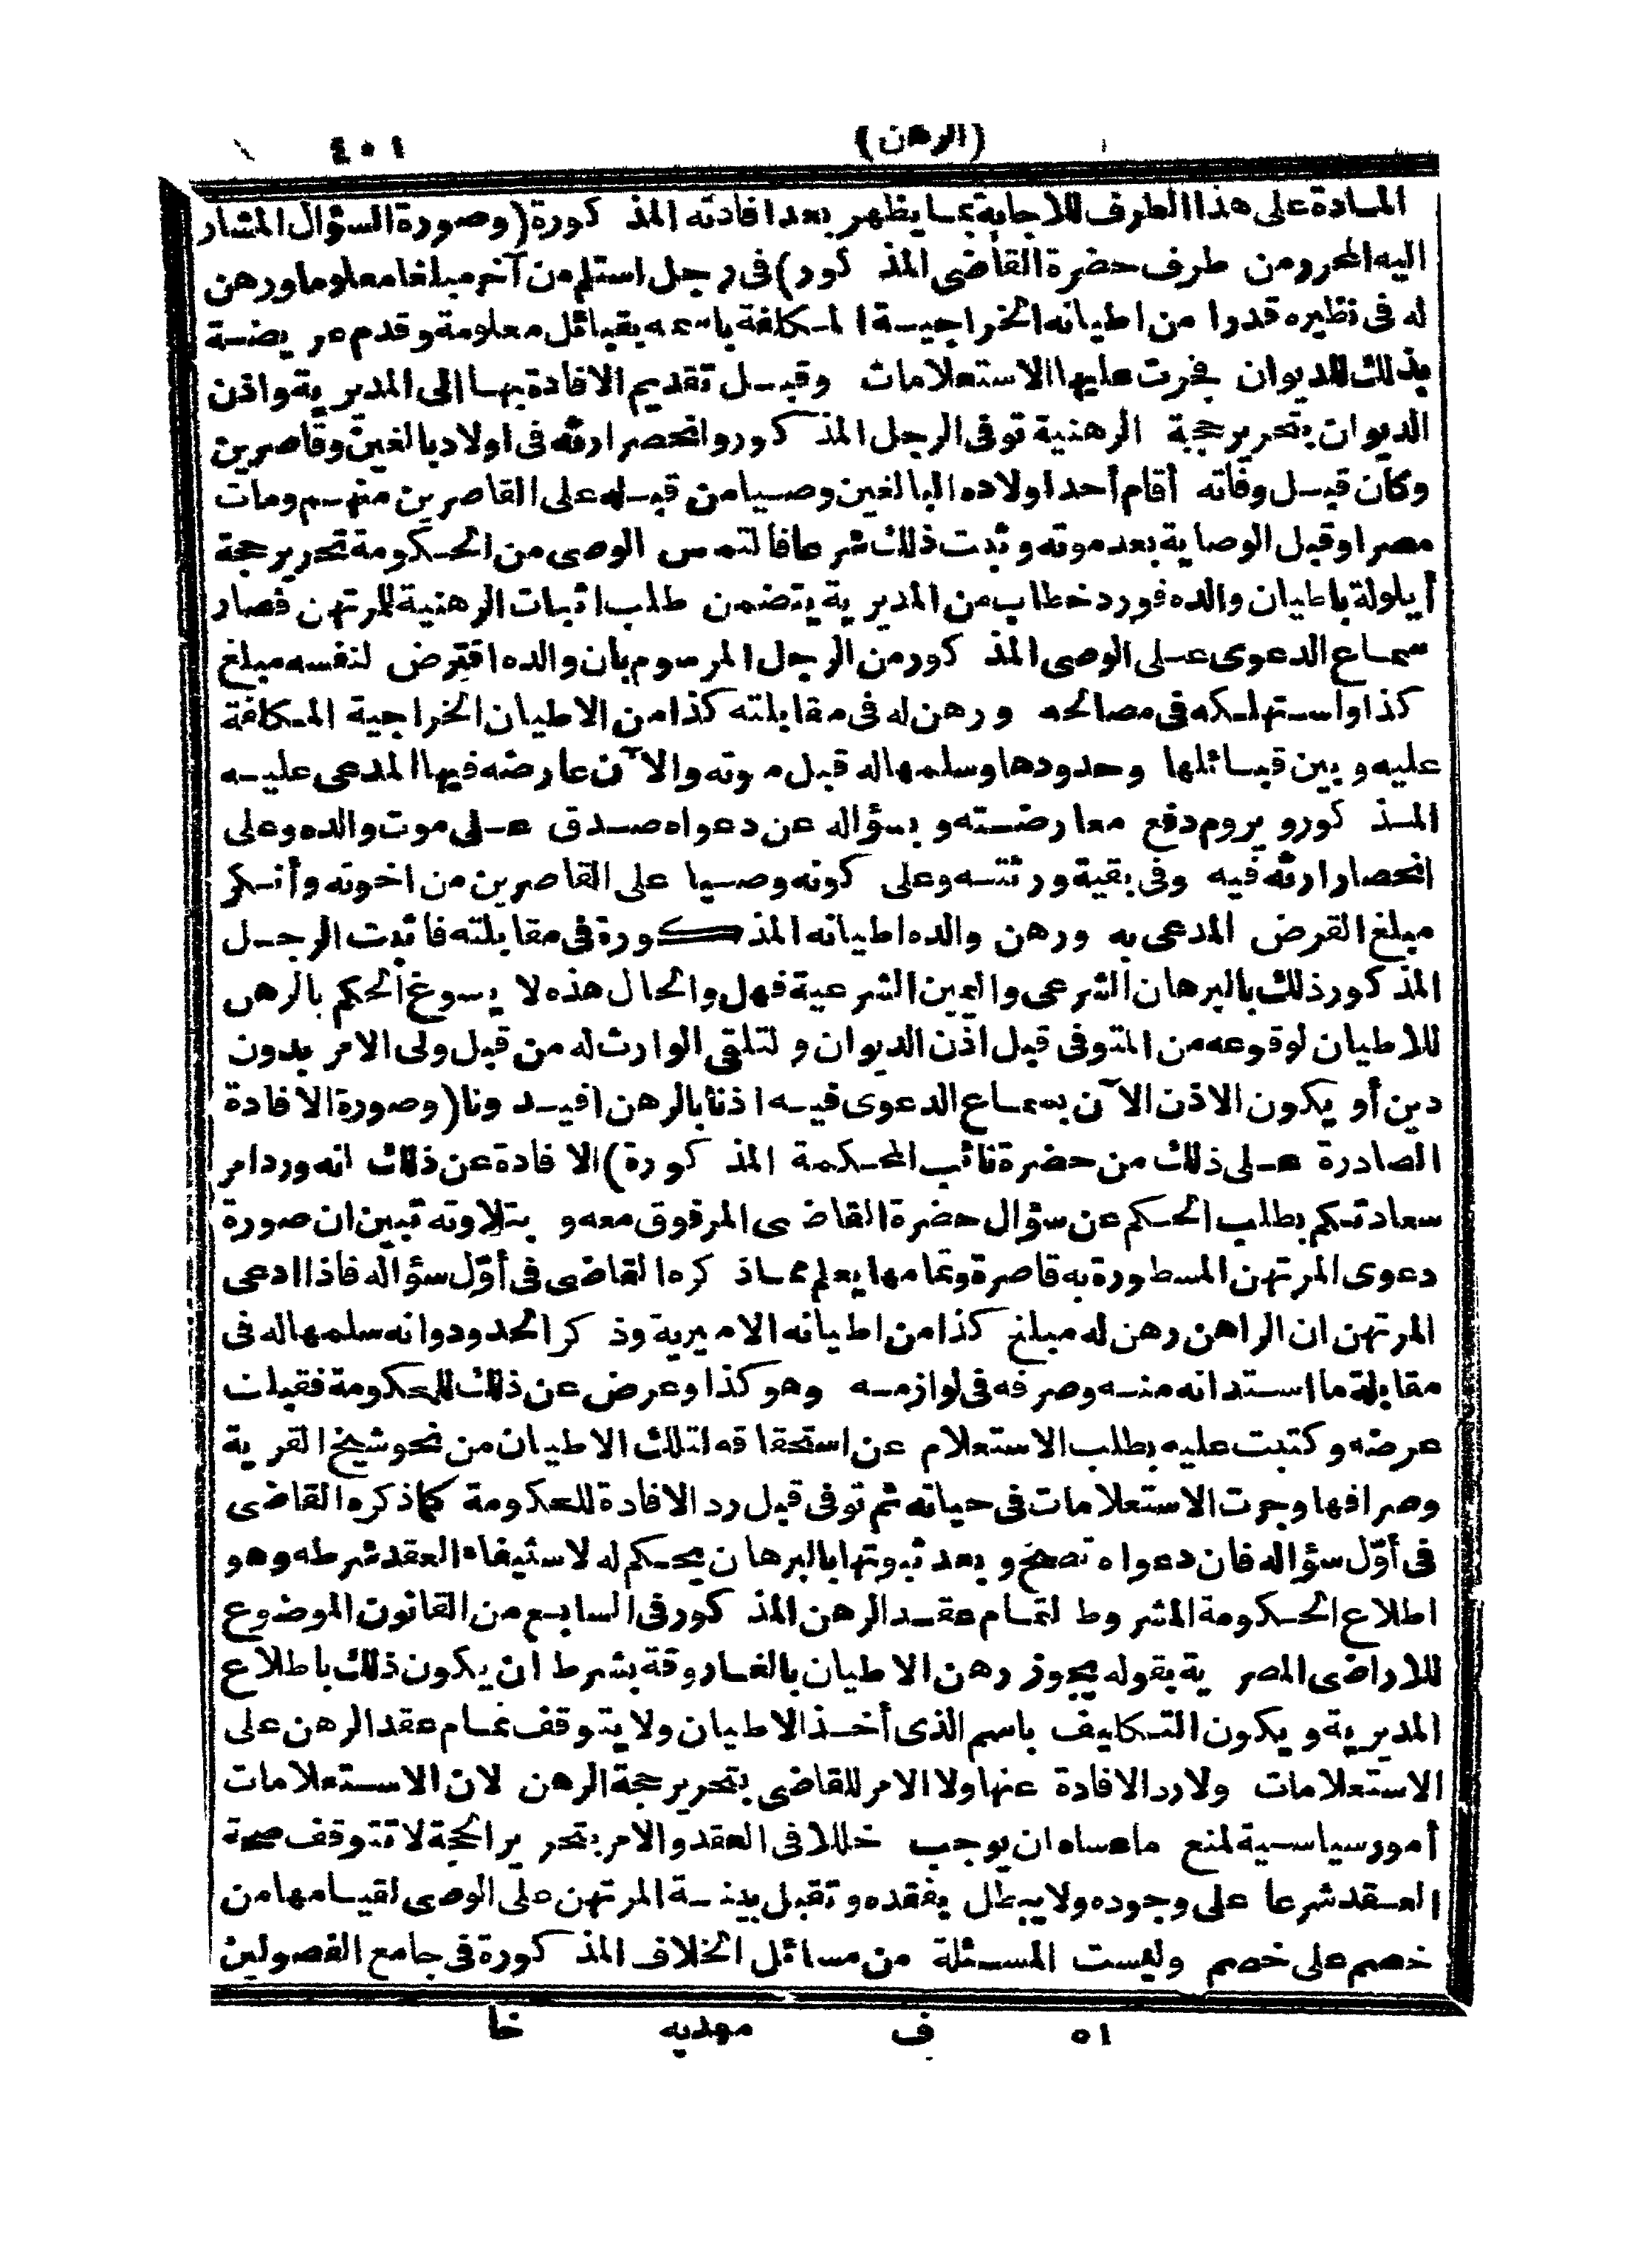 (الرهن) ٤٠١
المادة على هذا الطرف للاجابة بما يظهر بعد افادته المذكورة (وصورة السؤال المشار
اليه المحرر من طرف حضرة القاضى المذكور) فى رجل استلم من آخر مبلغا معلوما ورهن
له فى نظيره قدرا من اطيانه الخراجية المكلفة باسمه بقبائل معلومة وقدم عريضة
بذلك للديوان فجرت عليها الاستعلامات وقبل تقديم الافادة بها الى المديرية واذن
الديوان بتحرير حجة الرهنية توفى الرجل المذكور وانحصر ارثه فى اولاد بالغين وقاصرين
وكان قبل وفاته أقام أحد اولاده البالغين وصيا من قبله على القاصرين منهم ومات
مصرا وقبل الوصاية بعد موته وثبت ذلك شرعا فالتمس الوصى من الحكومة تحرير حجة
أيلولة باطيان والده فورد خطاب من المديرية يتضمن طلب اثبات الرهنية للمرتهن فصار
سماع الدعوى على الوصى المذكور من الرجل المرسوم بان والده اقترض لنفسه مبلغ
كذا واستهلكه فى مصالحه ورهن له فى مقابلته كذا من الاطيان الخراجية المكلفة
عليه وبين قبائلها وحدودها وسلمها له قبل موته والآن عارضه فيها المدعى عليه
المذكور ويروم دفع معارضته وبسؤاله عن دعواه صدق على موت والده وعلى
انحصار ارثه فيه وفى بقية ورثته وعلى كونه وصيا على القاصرين من اخوته وأنكر
مبلغ القرض المدعى به ورهن والده اطيانه المذكورة فى مقابلته فاثبت الرجل
المذكور ذلك بالبرهان الشرعى واليمين الشرعية فهل والحال هذه لا يسوغ الحكم بالرهن
للاطيان لوقوعه من المتوفى قبل اذن الديوان ولتلقى الوارث له من قبل ولى الامر بدون
دين أو يكون الاذن الآن بسماع الدعوى فيه اذنا بالرهن افيدونا (وصورة الافادة
الصادرة على ذلك من حضرة نائب المحكمة المذكورة) الافادة عن ذلك انه ورد امر
سعادتكم بطلب الحكم عن سؤال حضرة القاضى المرفوق معه وبتلاوته تبين ان صورة
دعوى المرتهن المسطورة به قاصرة وتمامها يعلم مما ذكره القاضى فى أوّل سؤاله فاذا ادعى
المرتهن ان الراهن رهن له مبلغ كذا من اطيانه الاميرية وذكر الحدود وانه سلمها له فى
مقابلة ما استدانه منه وصرفه فى لوازمه وهو كذا وعرض عن ذلك للحكومة فقبلت
عرضه وكتبت عليه بطلب الاستعلام عن استحقاقه لتلك الاطيان من نحو شيخ القرية
وصرافها وجرت الاستعلامات فى حياته ثم توفى قبل رد الافادة للحكومة كما ذكره القاضى
فى أوّل سؤاله فان دعواه تصح وبعد ثبوتها بالبرهان يحكم له لاستيفاء العقد شرطه وهو
اطلاع الحكومة المشروط لتمام عقد الرهن المذكور فى السابع من القانون الموضوع
للاراضى المصرية بقوله يجوز رهن الاطيان بالغاروقة بشرط ان يكون ذلك باطلاع
المديرية ويكون التكليف باسم الذى أخذ الاطيان ولا يتوقف تمام عقد الرهن على
الاستعلامات ولا رد الافادة عنها ولا الامر للقاضى بتحرير حجة الرهن لان الاستعلامات
أمور سياسية لمنع ما عساه ان يوجب خللا فى العقد والامر بتحرير الحجة لا تتوقف صحة
العقد شرعا على وجوده ولا يبطل بفقده وتقبل بينة المرتهن على الوصى لقيامها من
خصم على خصم وليست المسئلة من مسائل الخلاف المذكورة فى جامع الفصولين
٥١ ف مهديه خا